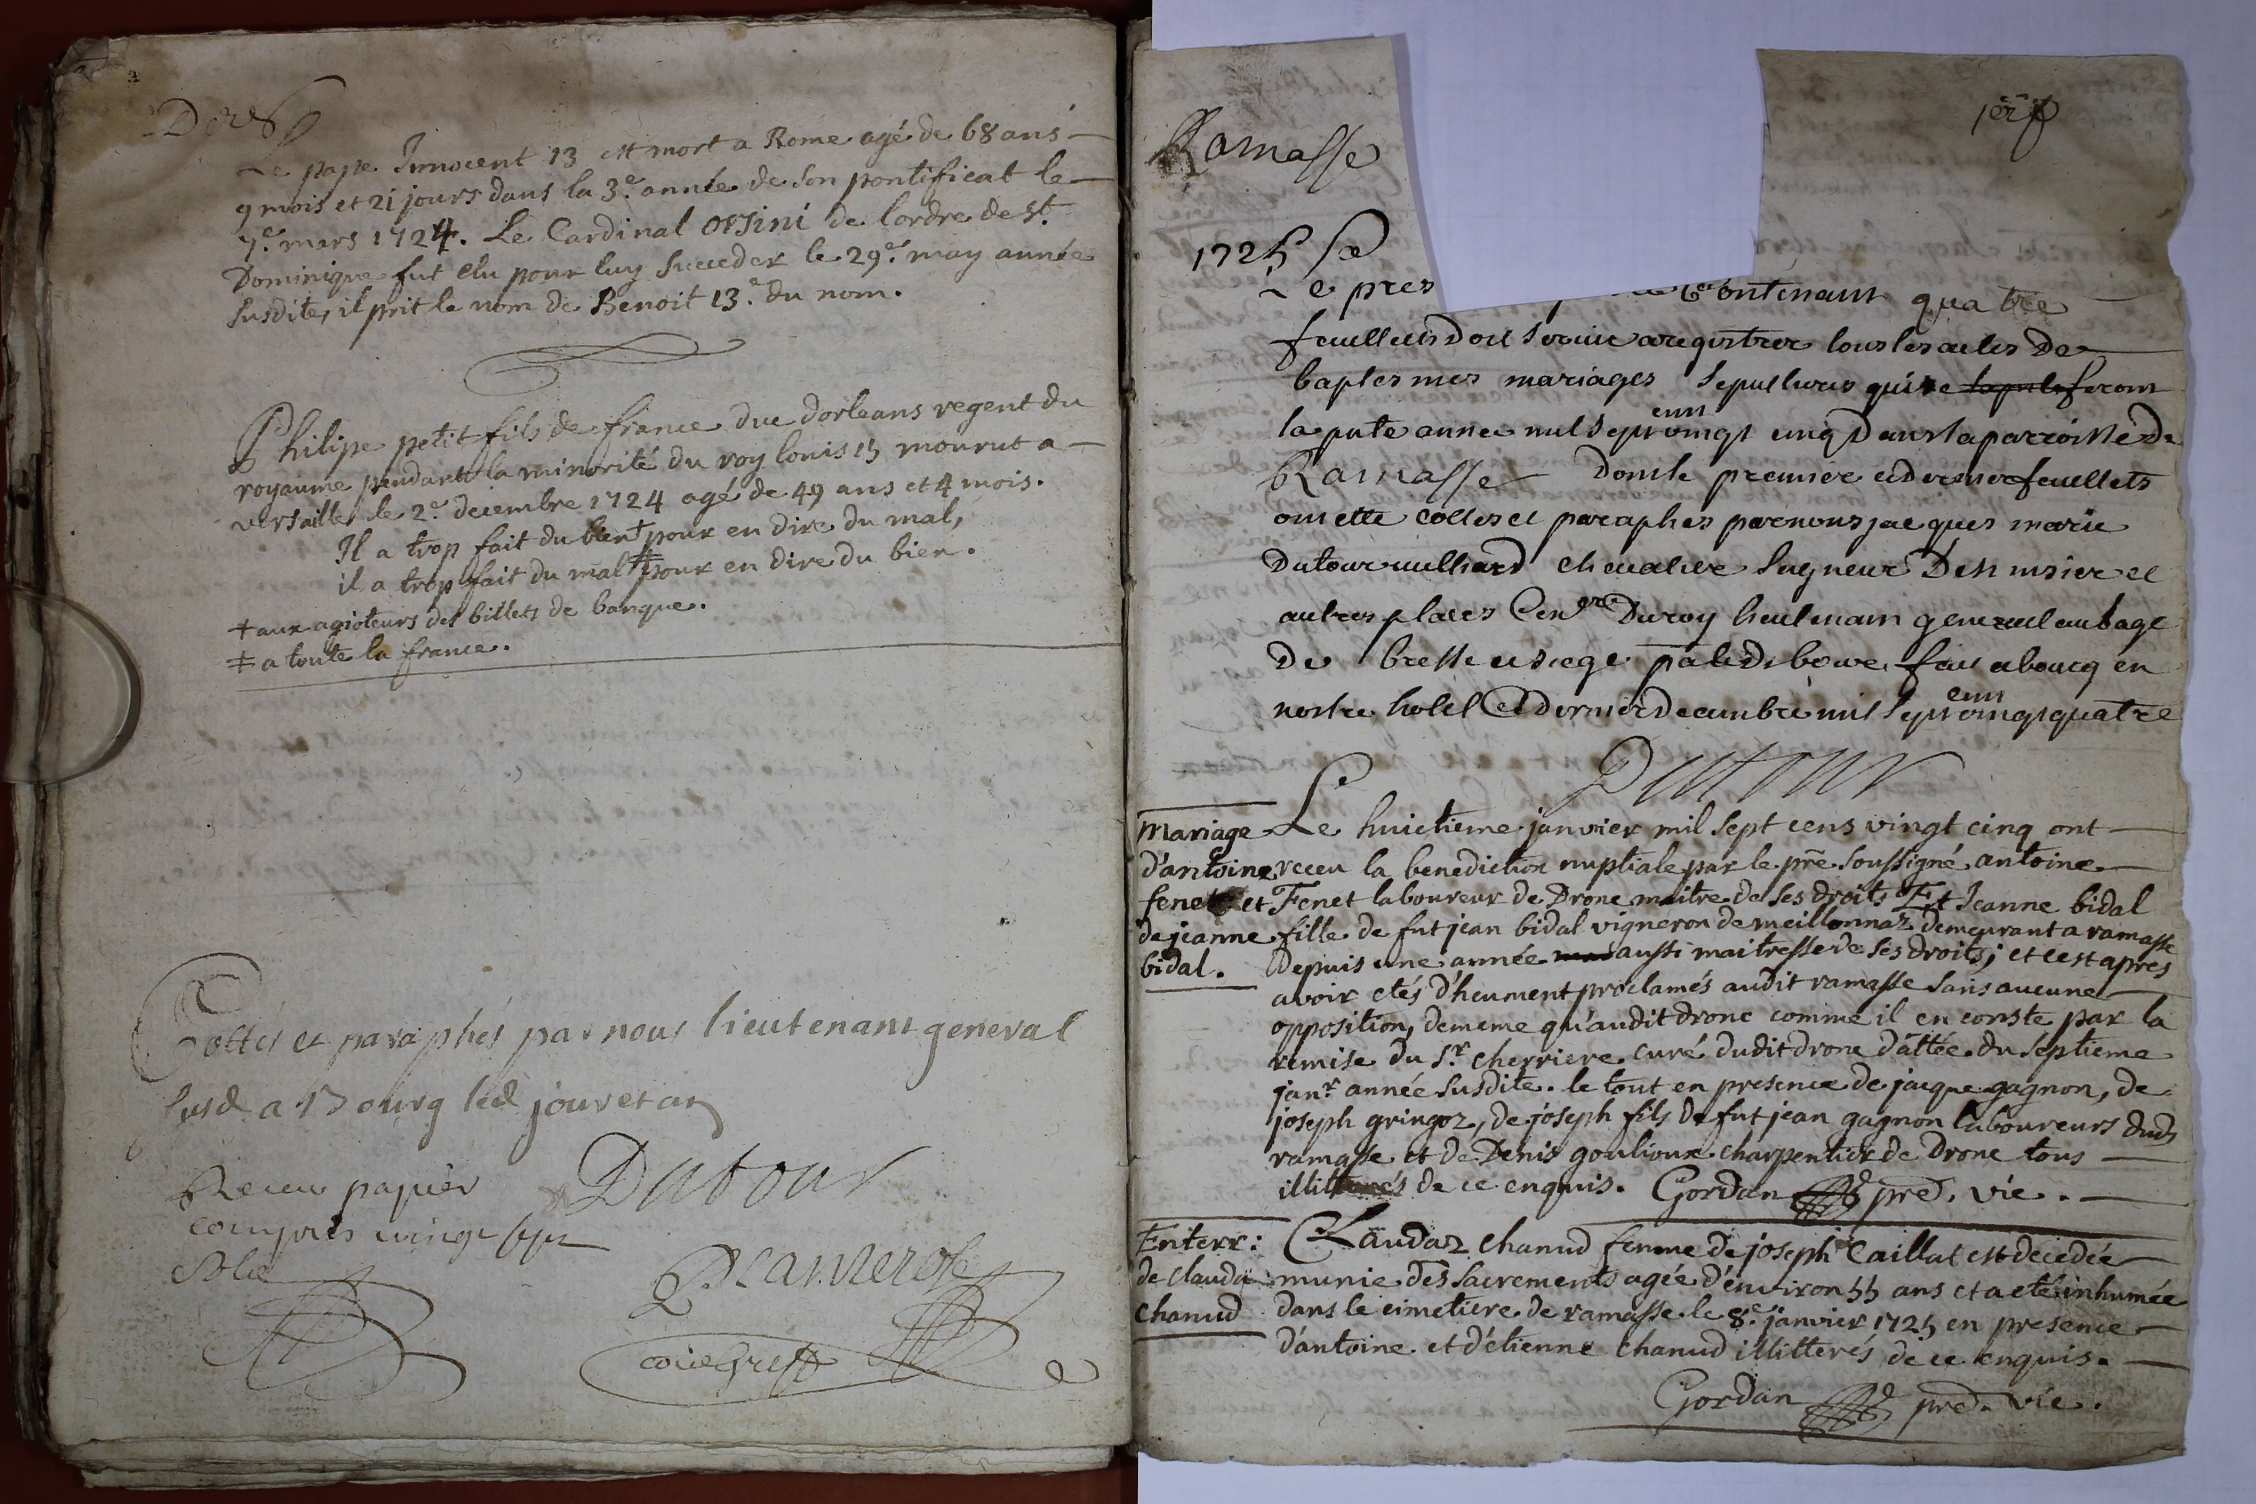 Der
Le pape Innocent 13 est mort a Rome agé de 68 ans
9 mois et 21 jours dans la 3.e année de son pontificat le
7.e mars 1724. Le Cardinal Orsini de lordre de st.
Dominique fut elu pour luy succeder le 29.e may année
susdite, il prit le nom de Benoit 13.e du nom.
Philipe petit fils de france duc dorleans regent du
royaume pendant la minorité du roy louis 15 mourut a
versaille le 2.e decembre 1724 agé de 49 ans et 4 mois.
Il a trop fait du bien† pour en dire du mal,
il a trop fait du mal‡ pour en dire du bien.
† aux agioteurs des billets de banque.
‡ a toute la france.
Cottés et paraphés par nous lieutenant general
susd a Bourg led jour et an
Dutour
Receu papier
compris vingt sept
sols
Ramasse
1er f
1725
Le pres contenant quatre
feuillets doit servir a registrer tous les actes de
baptesmes mariages sepultures qui se feront
la pnte annee mil sept cent vingt cinq dans la parroisse de
Ramasse dont le premier et dernier feuillets
ont ette cottes et paraphes par nous jacques marie
Dutour vulliard chevalier seigneur
autres places Con.er du roy lieutenant general au bage
de bresse et siege fait a bourg en
nostre hotel dernier decembre mil sept cent vingt quatre
Dutour
Mariage
d'antoine
fenet et
de jeanne
bidal.
Le huictieme janvier mil sept cens vingt cinq ont
receu la benediction nuptiale par le prê soussigné antoine
Fenet laboureur de Drone maitre de ses droits Et Jeanne bidal
fille de fut jean bidal vigneron de meillonnaz demeurant a ramasse
depuis une année aussi maitresse de ses droits; et cest apres
avoir etés d'heument proclamés audit ramasse sans aucune
opposition, dememe qu'audit drone comme il en conste par la
remise du s.r cherriere curé dudit drone dattée du septieme
jan.r année susdite. le tout en presence de jacque gagnon, de
joseph gringoz, de joseph fils de fut jean gagnon laboureurs dud
ramasse et de Denis goulioux charpentier de Drone tous
illitterés de ce enquis. Gordan pred. vic.
Enterr:
de clauda
chanud
Claudaz chanud femme de joseph Caillat est decedée
munie des sacrements agée d'environ 55 ans et a eté inhumée
dans le cimetiere de ramasse le 8.e janvier 1725 en presence
d'antoine et d'étienne chanud illitterés de ce enquis.
Gordan pred. vic.